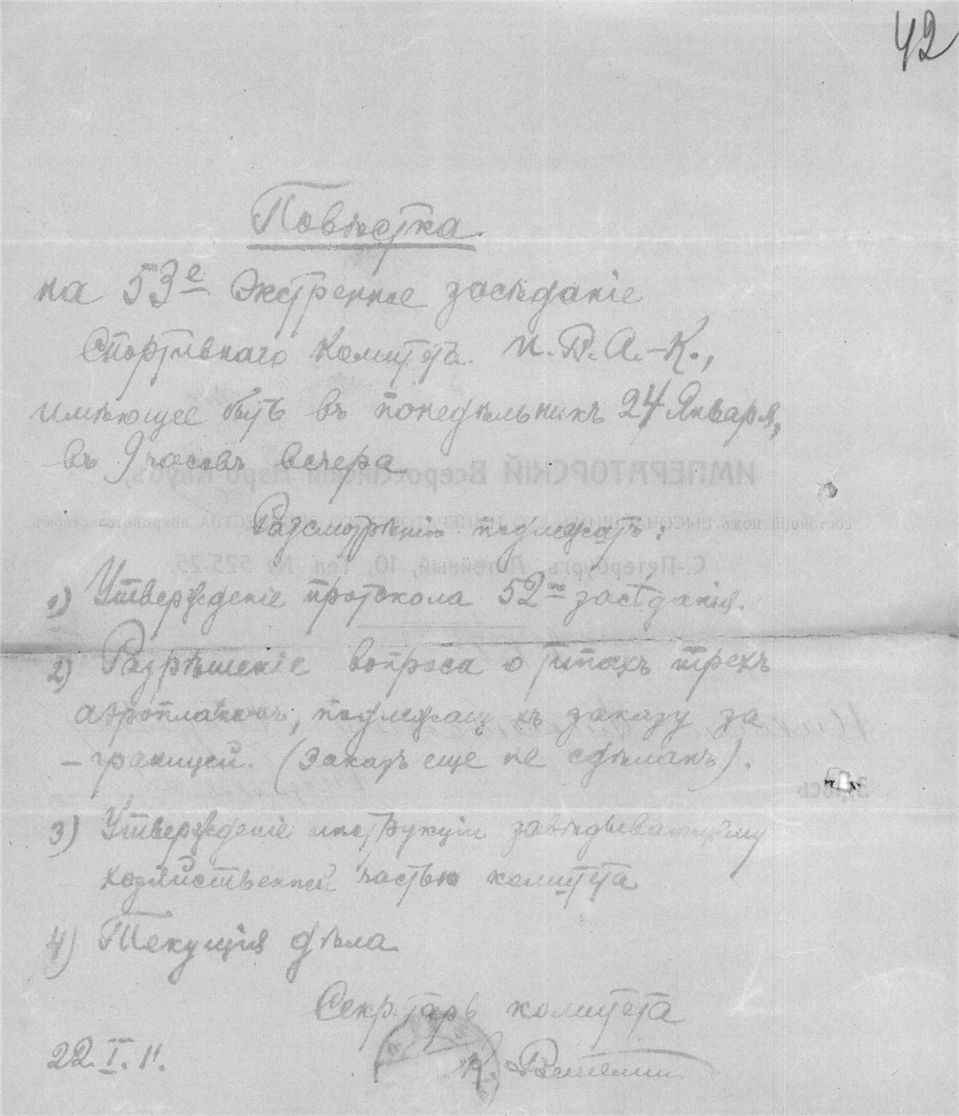 42
Повѣстка
на 53е Экстренное засѣданіе
Спортивнаго Комитета И.В.А.-К.,
имѣющее быть въ понедѣльникъ 24 Января,
въ 9 часовъ вечера
ИМПЕРАТОРСКІЙ Всероссійскій Аэро-Клубъ,
С.-Петербургъ, Литейный, 10. Тел. № 525-25.
Разсмотрѣнію подлежатъ:
1) Утвержденіе протокола 52го засѣданія.
2) Разрѣшеніе вопроса о типахъ трехъ
аэроплановъ, подлежащ къ заказу за
-границей. (Заказъ еще не сдѣланъ).
Здѣсь
3) Утвержденіе инструкціи завѣдывающему
хозяйственной частью комитета
4) Текущія дѣла
Секретарь комитета
22.I.11.